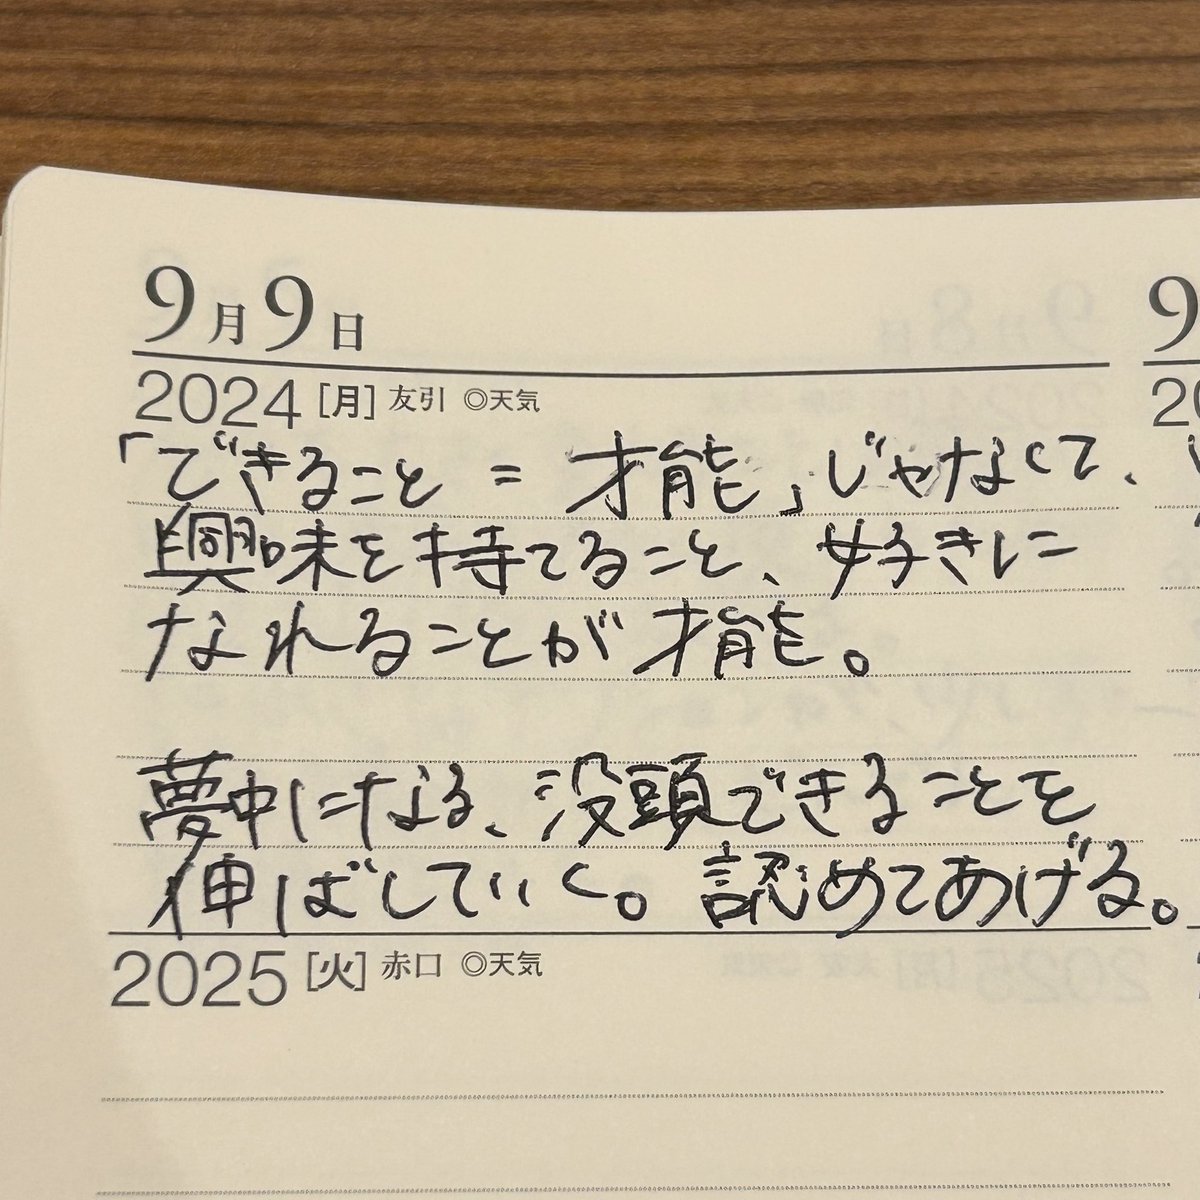 9月9日
2024[月] 友引 ◎天気
「できること = 才能」じゃなくて、
興味を持てること、好きに
なれることが才能。
夢中になる、没頭できることを
伸ばしていく。認めてあげる。
2025[火] 赤口 ◎天気
9
20